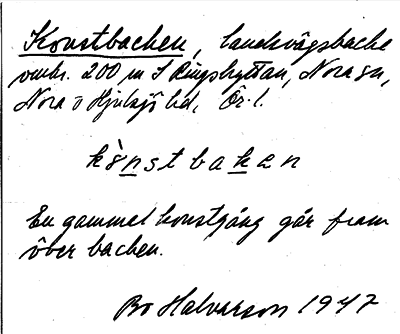 Konstbacken, landsvägsbacke
omkr. 200 m S Ringshyttan, Nora sn,
Nora o Hjulsjö bd, Ör. l.
kònstbakan
En gammal konstgång går fram
över backen.
Bo Halvarson 1947